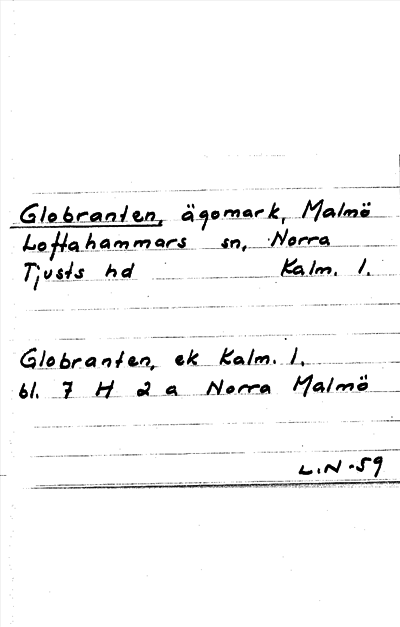 Globranten, ägomark, Malmö
Loftahammars sn, Norra
Tjusts hd Kalm. l.
Globranten, ek Kalm. l.
bl. 7 H 2 a Norra Malmö
L.N-59